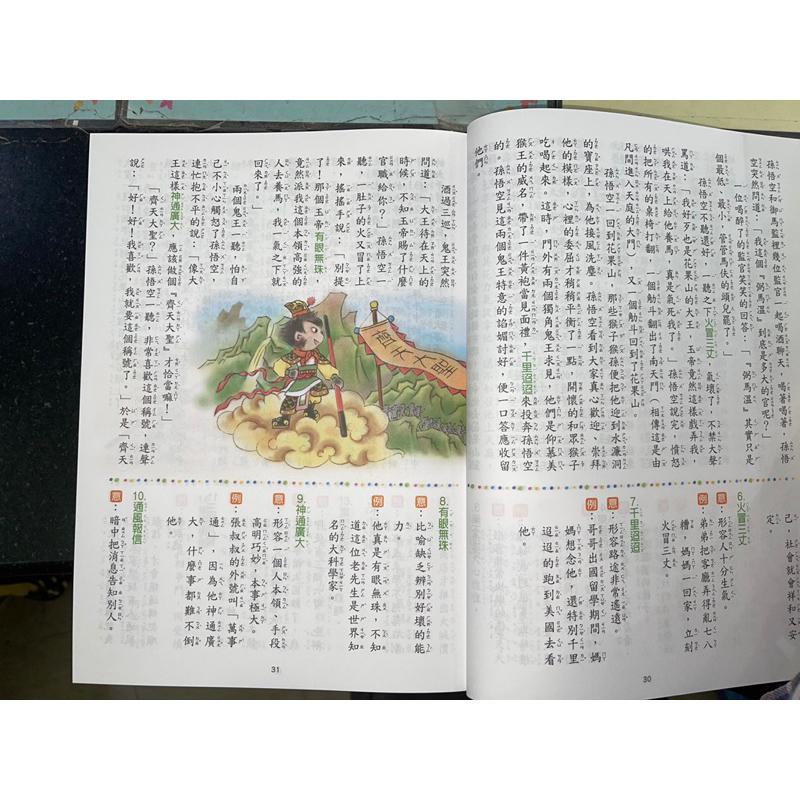 孫悟空和御馬監裡幾位監官一起喝酒聊天，喝著喝著，孫悟
空突然問道：「我這個『弼馬溫』到底是多大的官呢？」
一位喝醉了的監官笑笑的回答：「『弼馬溫』其實只是
個最低、最小，管管馬伕的頭兒罷了。」
孫悟空不聽還好，一聽之下火冒三丈，氣壞了，不禁大聲
罵道：「我好歹也是花果山的大王，玉帝竟然這樣戲弄我，
哄我在天上給他養馬，真是氣死我了！」孫悟空說完，憤怒
的把所有的桌椅打翻，一個觔斗翻出了南天門（相傳這是由
凡間進入天庭的大門），又一個觔斗回到了花果山。
孫悟空一回到花果山，那些猴子猴孫便把他迎到水濂洞
的寶座上，為他接風洗塵。孫悟空看到大家真心歡迎、崇拜
他的模樣，心裡的委屈才稍稍平衡了一點，開懷的和眾猴子
吃喝起來。這時，門外有兩個獨角鬼王來見，他們是仰慕美
猴王的威名，帶了一件黃袍當見面禮，千里迢迢來投奔孫悟空
的。孫悟空見這兩個鬼王特意的諂媚討好，便一口答應收留
他們。
6.火冒三丈
意：形容人十分生氣。
例：弟弟把客廳弄得亂七八
糟，媽媽一回家，立刻
火冒三丈。
7.千里迢迢
意：形容路途非常遙遠。
例：哥哥出國留學期間，媽
媽想念他，還特別千里
迢迢的跑到美國去看
他。
己，社會就會祥和又安
定。
30
酒過三巡，鬼王突然
問道：「大王待在天上的
時候，不知玉帝賜了什麼
官職給你？」孫悟空一
聽，一肚子的火又冒了上
來，搖搖手說：「別提
了！那個玉帝有眼無珠，
竟然派我這個本領高強的
人去養馬，我一氣之下就
回來了。」
兩個鬼王一聽，怕自
己不小心觸怒了孫悟空，
連忙抱不平的說：「像大
王這樣神通廣大，應該做個『齊天大聖』才恰當嘛！」
「齊天大聖？」孫悟空一聽，非常喜歡這個稱號，連聲
說：「好！好！我喜歡，我就要這個稱號了！」於是「齊天
齊天大聖
8.有眼無珠
意：比喻缺乏辨別好壞的能
力。
例：他真是有眼無珠，不知
道這位老先生是世界知
名的大科學家。
9.神通廣大
意：形容一個人本領、手段
高明巧妙，本事極大。
例：張叔叔的外號叫「萬事
通」，因為他神通廣
大，什麼事都難不倒
他。
10.通風報信
意：暗中把消息告知別人。
31